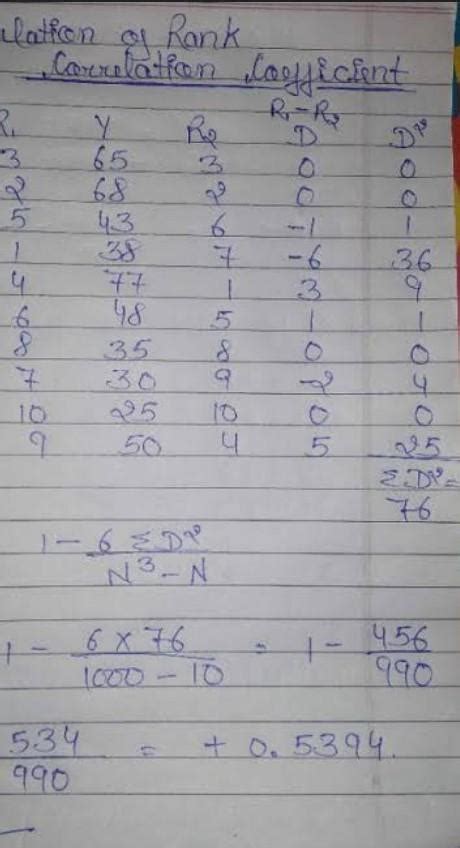 lation of Rank
Correlation Coefficient
R1-R2
R1 Y R2 D D²
3 65 3 0 0
2 68 2 0 0
5 43 6 -1 1
1 38 7 -6 36
4 77 1 3 9
6 48 5 1 1
8 35 8 0 0
7 30 9 -2 4
10 25 10 0 0
9 50 4 5 25
ΣD²=
76
1 - 6 ΣD²
N³ - N
1 - 6 x 76 = 1 - 456
1000 - 10 990
534 = + 0.5394
990